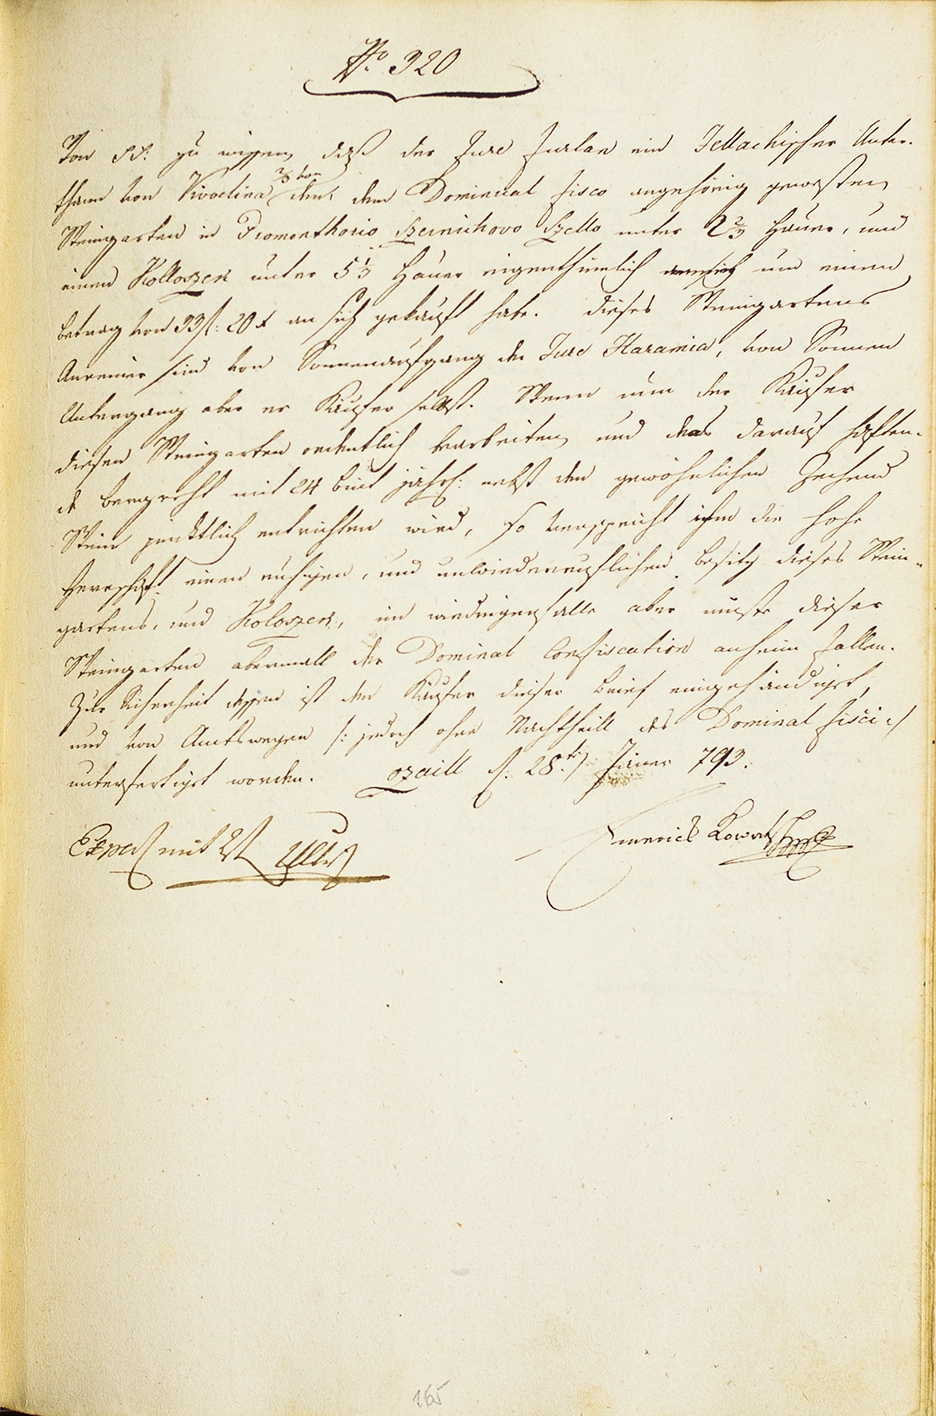 No. 320
Von SS: zu wissen, daß der Jure Furlan ein Jellachischer Unter-
than von Vivodina 2/3 von dem Dominical Fisco angehörig gewesten
Weingarten in Promonthorio Czernichovo Szello unter 2 2/3 Hauer, und
einen Kolloszek unter 5 1/3 Hauer eigenthümlich um einen
Betrag von 33 f: 20 x an sich gekauft habe. Dieses Weingartens
Anrainer sind von Sonnenaufgang der Jure Haramia, von Sonnen
Untergang aber er Kaufer selbst. Wenn nun der Kaufer
diesen Weingarten ordentlich bearbeiten, und das darauf haften-
de Bergrecht mit 24 Pint jährl: nebst den gewöhnlichen Zechend
Wein pünktlich entrichten wird, so verspricht ihm die hohe
Herrschaft einen ruhigen, und unwiederruflichen Besitz dieses Wein-
gartens, und Koloszek, im wiedrigenfalle aber müste dieser
Weingarten abermall der Dominal Confiscation anheim fallen.
Zur Sicherheit dessen ist den Kaufer dieser Brief eingehändiget,
und von Amtswegen /: jedoch ohne Nachtheill des Dominal Fisci :/
unterfertiget worden. Ozaill d. 28ten Jäner 793.
mit 2f
Emerich
165